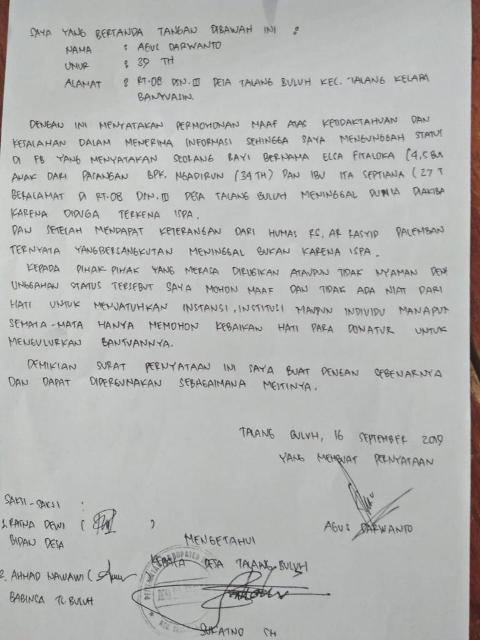 SAYA YANG BERTANDA TANGAN DIBAWAH INI :
NAMA : AGUS DARWANTO
UMUR : 39 TH
ALAMAT : RT.08 DSN.III DESA TALANG BULUH KEC. TALANG KELAPA
BANYUASIN.
DENGAN INI MENYATAKAN PERMOHONAN MAAF ATAS KETIDAKTAHUAN DAN
KESALAHAN DALAM MENERIMA INFORMASI SEHINGGA SAYA MENGUNGGAH STATUS
DI FB YANG MENYATAKAN SEORANG BAYI BERNAMA ELSA FITALOKA (4,5 BU
ANAK DARI PASANGAN BPK. NGADIRUN (34 TH) DAN IBU ITA SEPTIANA (27 T
BERALAMAT DI RT.08 DSN.III DESA TALANG BULUH MENINGGAL DUNIA DIAKIBA
KARENA DIDUGA TERKENA ISPA.
DAN SETELAH MENDAPAT KETERANGAN DARI HUMAS RS. AR RASYID PALEMBAN
TERNYATA YANG BERSANGKUTAN MENINGGAL BUKAN KARENA ISPA.
KEPADA PIHAK PIHAK YANG MERASA DIRUGIKAN ATAUPUN TIDAK NYAMAN DEN
UNGGAHAN STATUS TERSEBUT SAYA MOHON MAAF DAN TIDAK ADA NIAT DARI
HATI UNTUK MENJATUHKAN INSTANSI, INSTITUSI MAUPUN INDIVIDU MANAPUN
SEMATA-MATA HANYA MEMOHON KEBAIKAN HATI PARA DONATUR UNTUK
MENGULURKAN BANTUANNYA.
DEMIKIAN SURAT PERNYATAAN INI SAYA BUAT DENGAN SEBENARNYA
DAN DAPAT DIPERGUNAKAN SEBAGAIMANA MESTINYA.
TALANG BULUH, 16 SEPTEMBER 2019
YANG MEMBUAT PERNYATAAN
AGUS DARWANTO
SAKSI-SAKSI :
1. RATNA DEWI ( )
BIDAN DESA
MENGETAHUI
KEPALA DESA TALANG BULUH
2. AHMAD NAWAWI (
BABINSA TL BULUH
SUKATNO SH